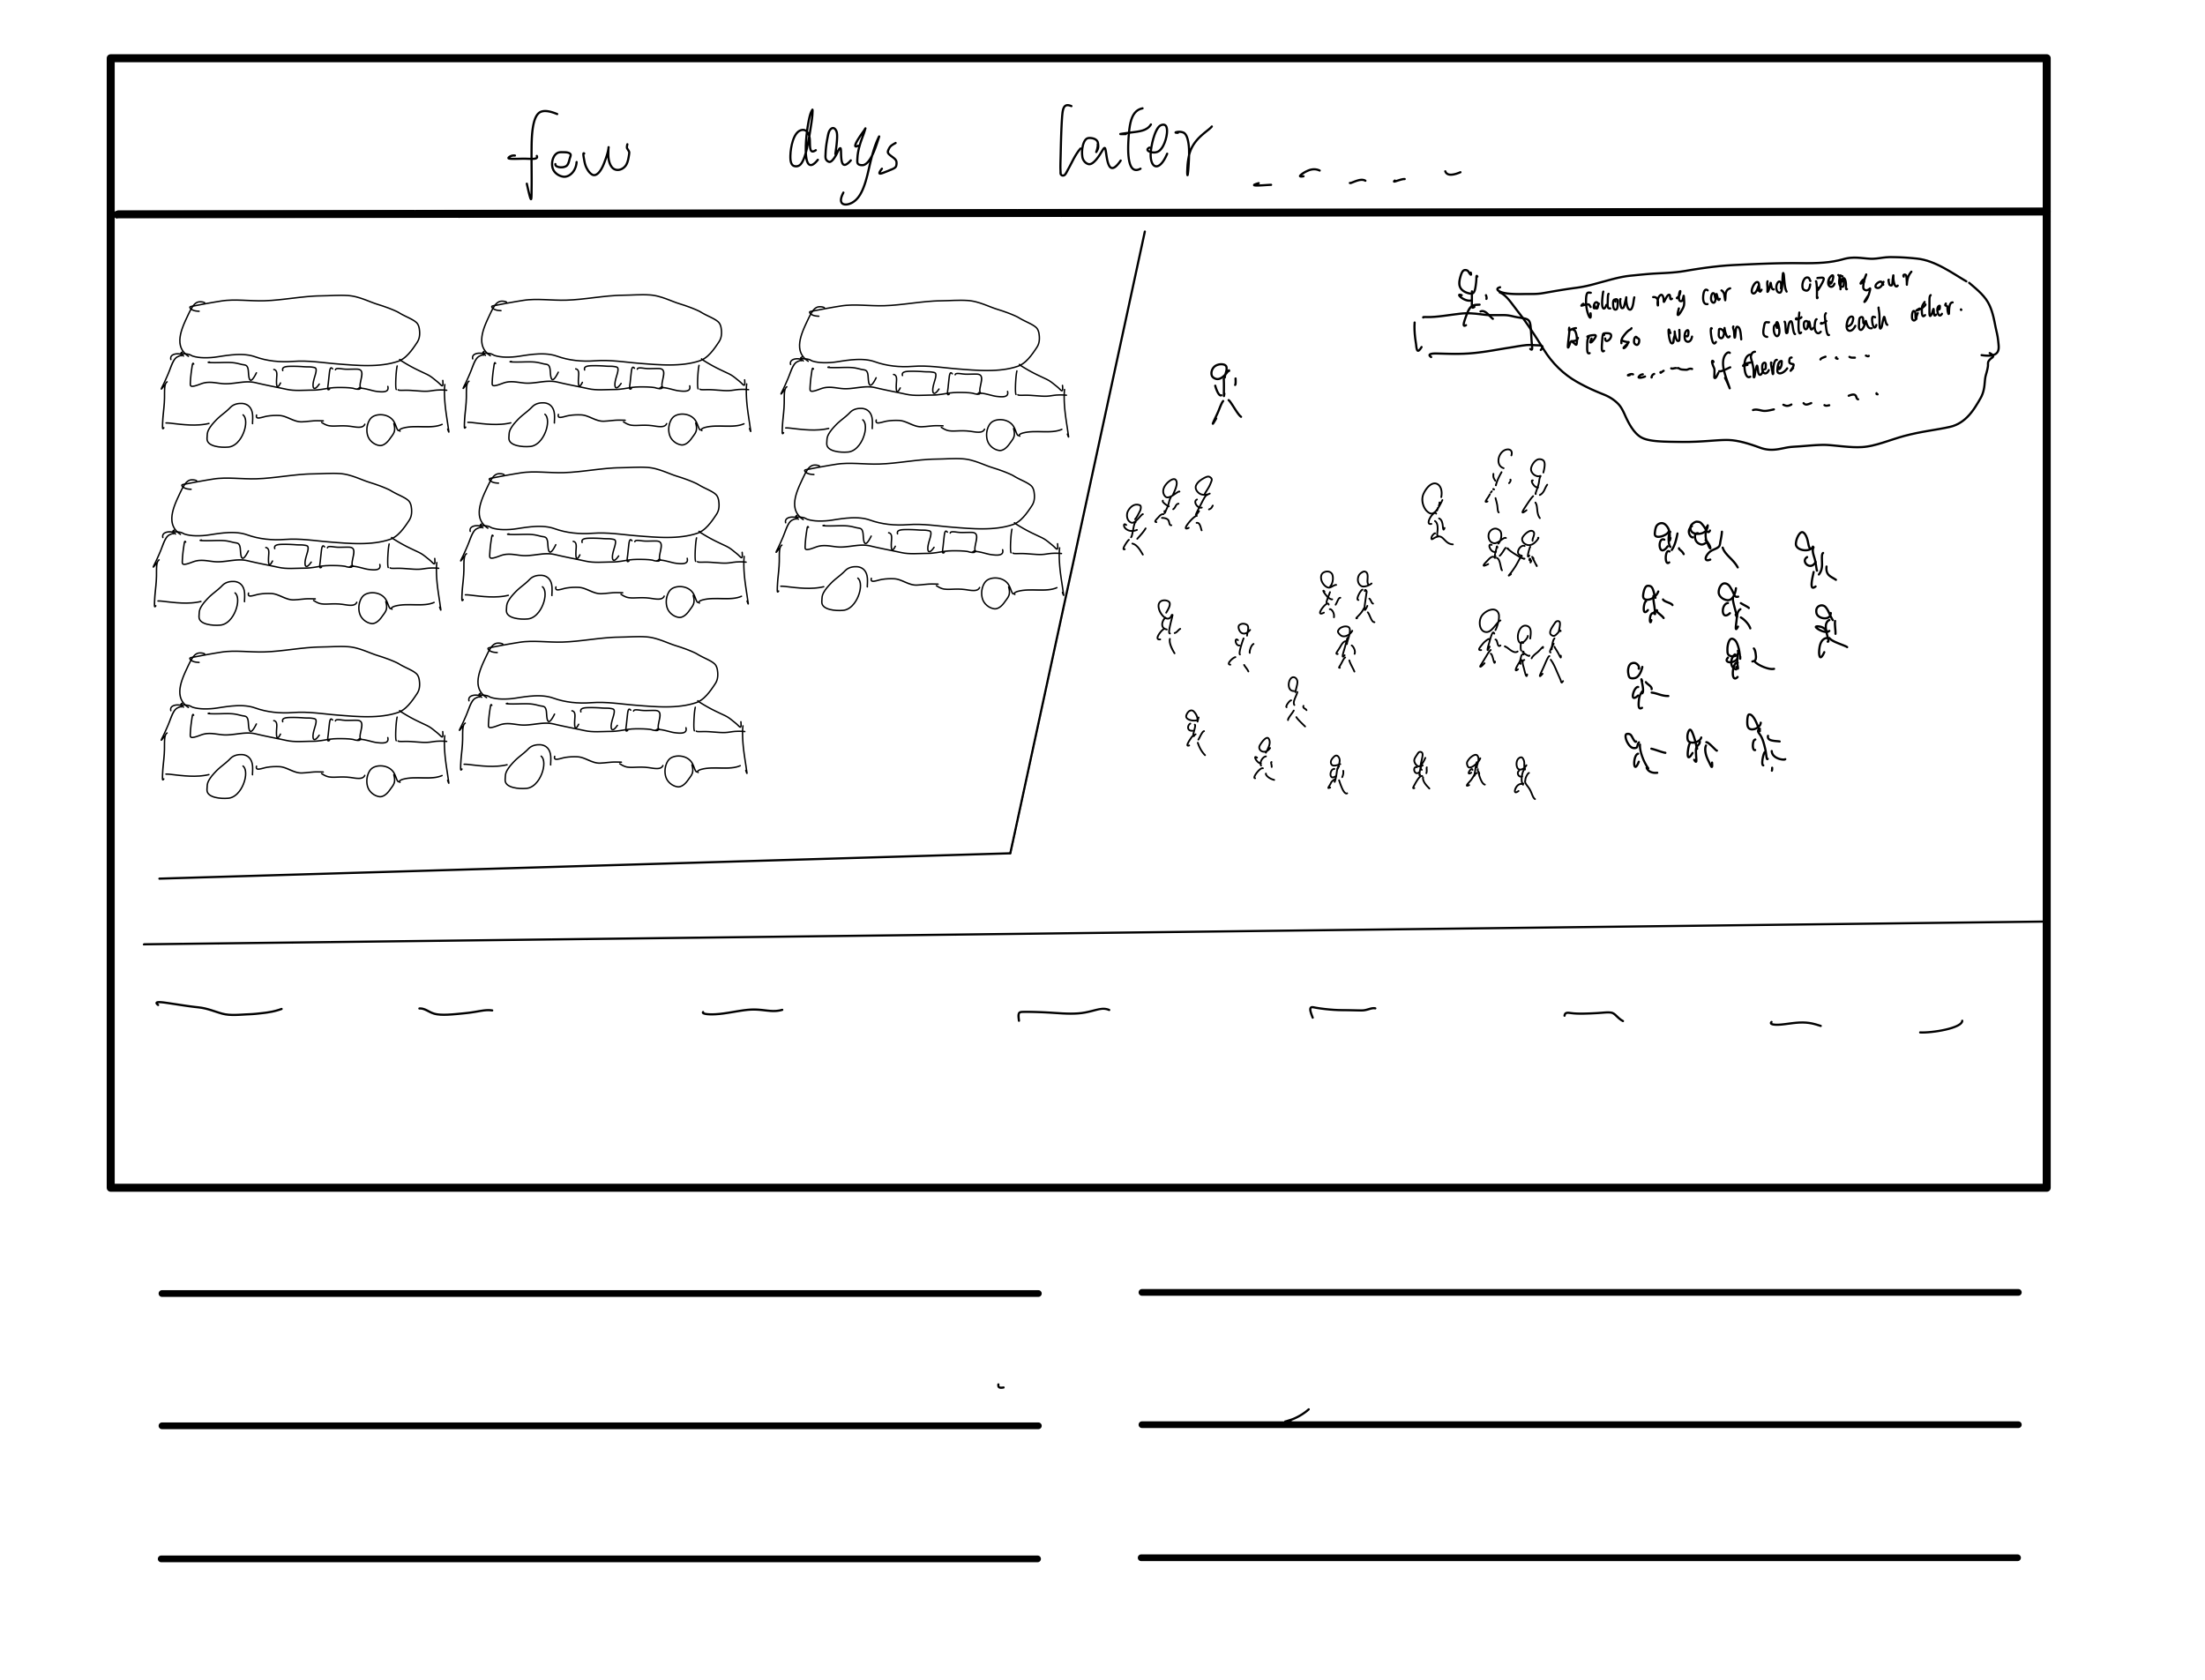 few days later - - - - -
follow my car and open your
App so we can contact each other.
- - - - - If theres - - - -
- - - - - -